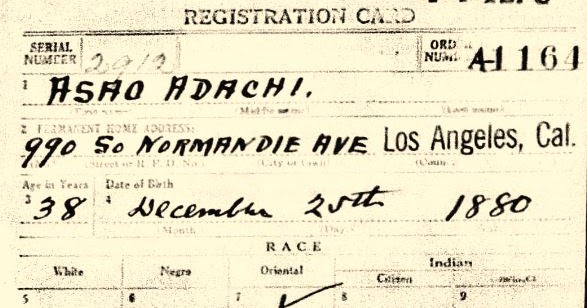 REGISTRATION CARD
SERIAL NUMBER 2912 ORDER NUMBER A1164
1 ASAO ADACHI.
(First name) (Middle name) (Last name)
2 PERMANENT HOME ADDRESS:
990 So NORMANDIE AVE Los Angeles, Cal.
(Street or R. F. D. No.) (City or town) (County)
Age in Years Date of Birth
3 38 4 December 25th 1880
Month Day
RACE
White Negro Oriental Indian
Citizen
5 6 7 ✓ 8 9